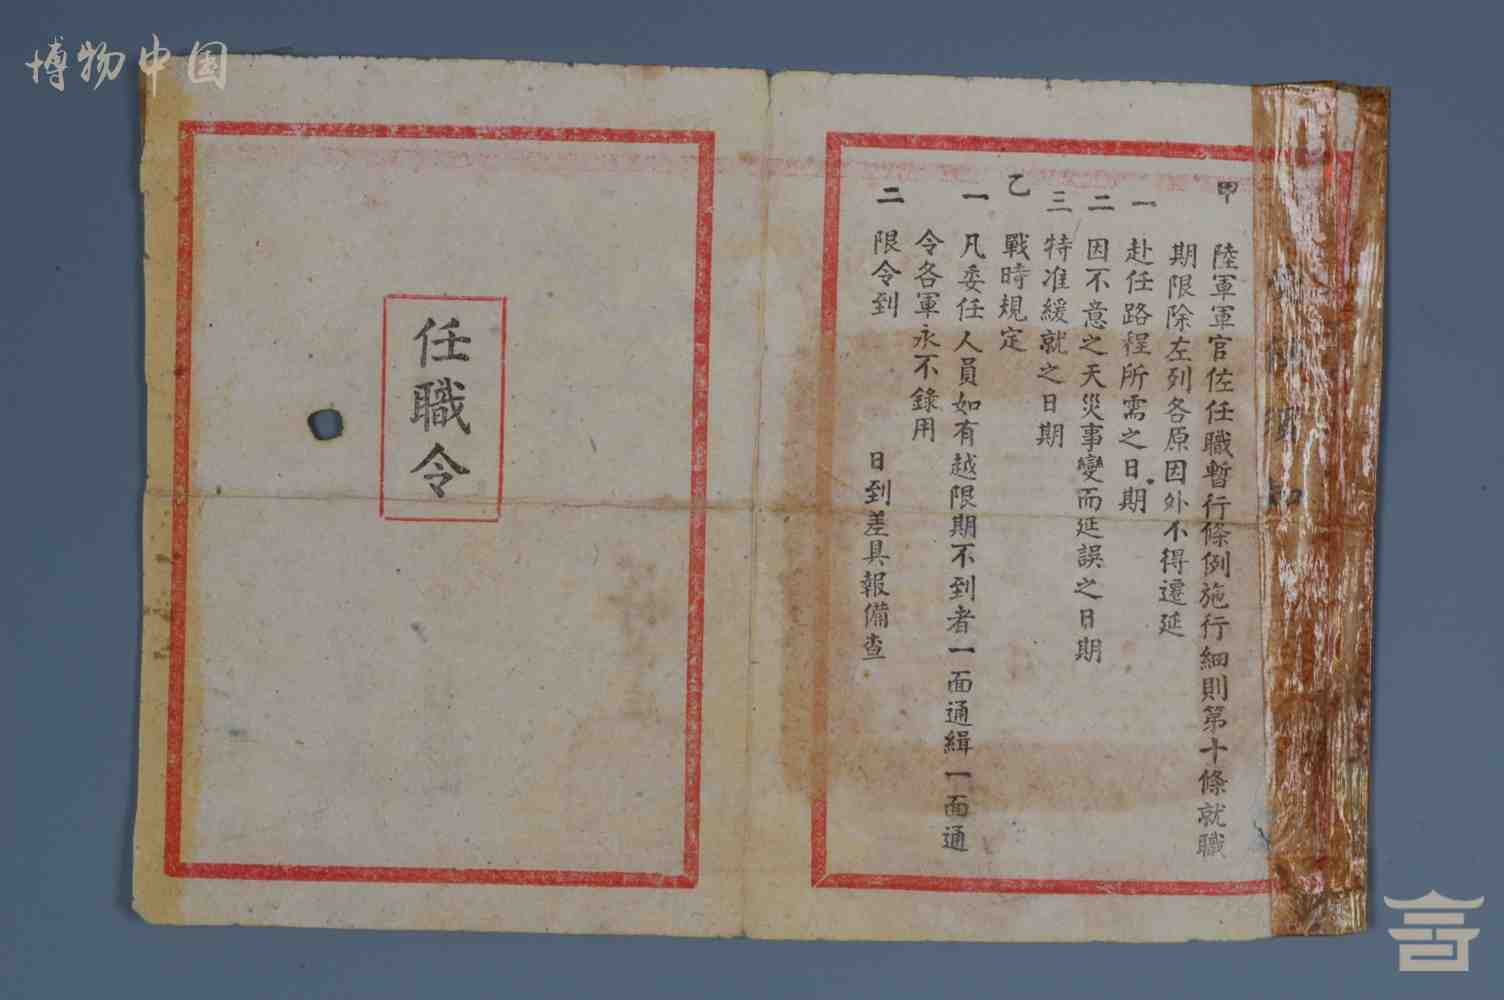 博物中国
甲 陸軍軍官佐任職暫行條例施行細則第十條就職
期限除左列各原因外不得遷延
一 赴任路程所需之日期
二 因不意之天災事變而延誤之日期
三 特准緩就之日期
乙 戰時規定
一 凡委任人員如有越限期不到者一面通緝一面通
令各軍永不錄用
二 限令到 日到差具報備查
任職令